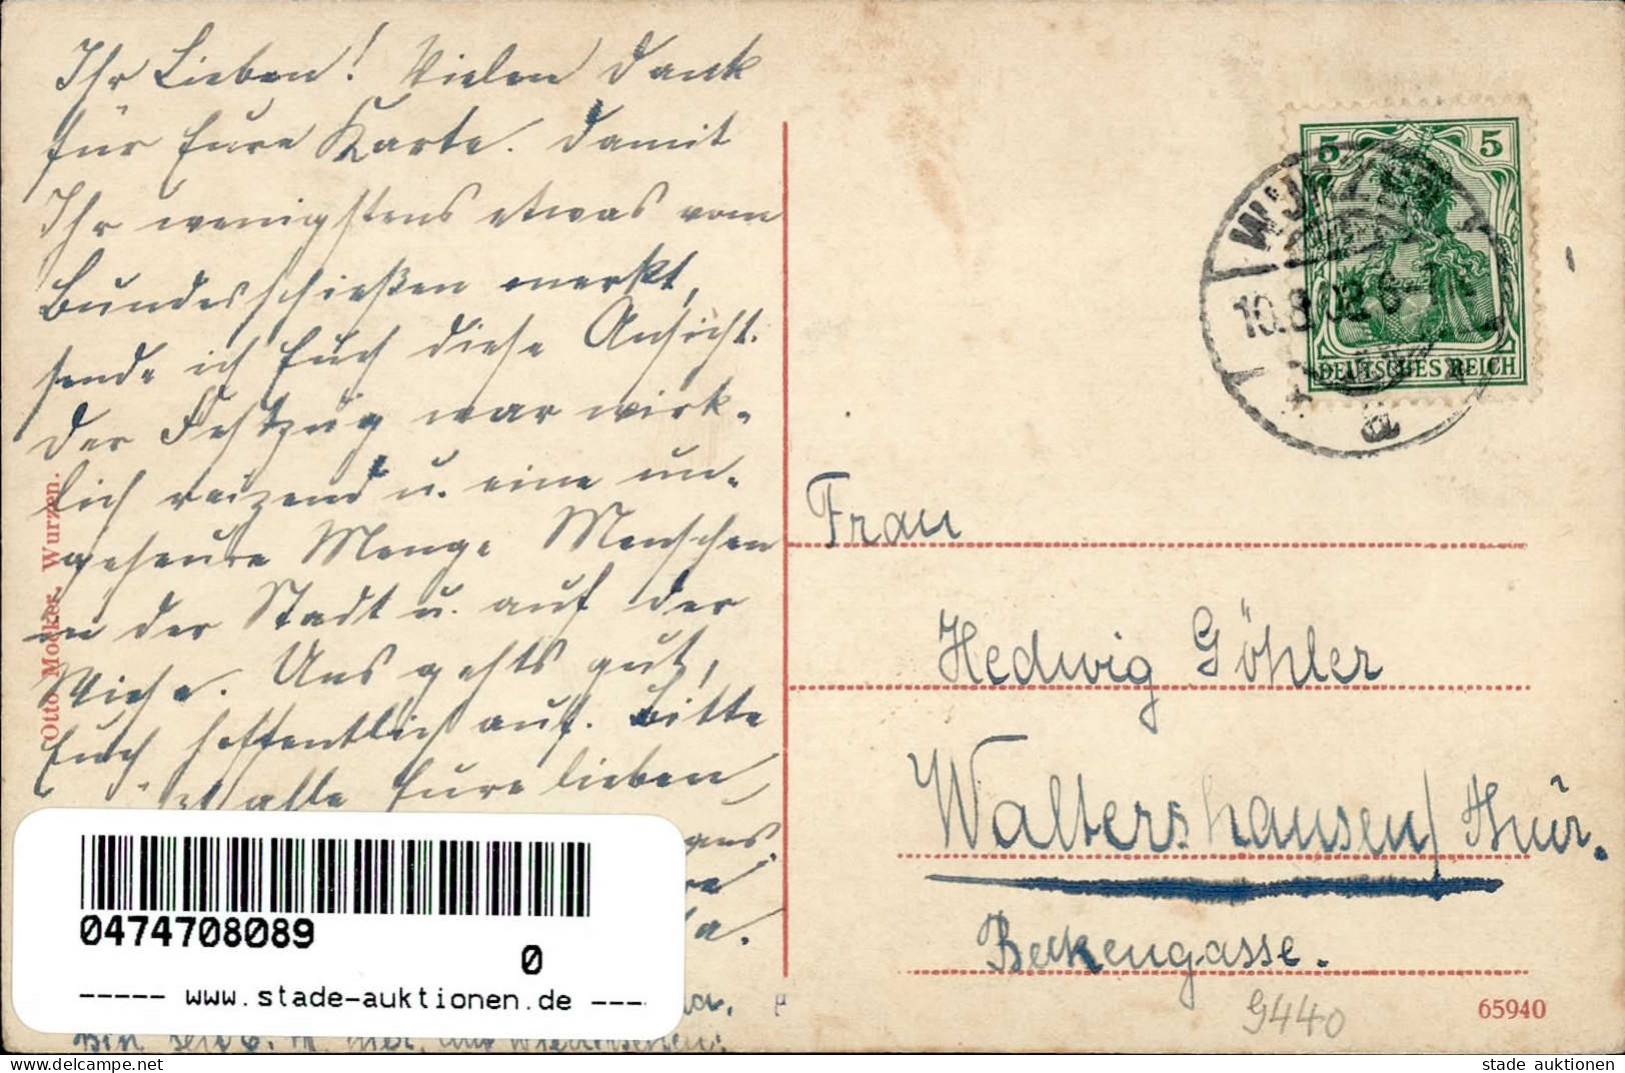 Ihr Lieben! Vielen Dank
für Eure Karte. Damit
Ihr wenigstens etwas vom
Bundesschießen merkt,
sende ich Euch diese Ansicht.
Der Festzug war wirk-
lich reizend u. eine un-
geheure Menge Menschen
in der Stadt u. auf der
Wiese. Uns gehts gut,
Euch hoffentlich auch. Bitte
alle Eure lieben
Otto Mocker, Wurzen.
5 5
DEUTSCHES REICH
10.8.
a
Frau
Hedwig Göhler
Waltershausen/Thür.
Beckengasse.
9440
65940
0474708089
0
----- www.stade-auktionen.de ---
stade auktionen